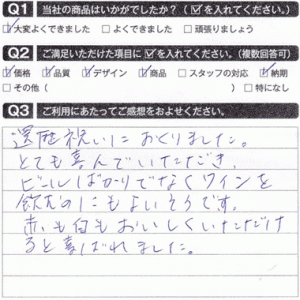 Q1 当社の商品はいかがでしたか？（☑を入れてください。）
☑大変よくできました □よくできました □頑張りましょう
Q2 ご満足いただけた項目に☑を入れてください。（複数回答可）
☑価格 ☑品質 ☑デザイン ☑商品 □スタッフの対応 ☑納期
□その他（ ） □特になし
Q3 ご利用にあたってご感想をおよせください。
還暦祝いにおくりました。
とても喜んでいただき、
ビールばかりでなくワインを
飲むのにもよいそうです。
赤も白もおいしくいただけ
ると喜ばれました。